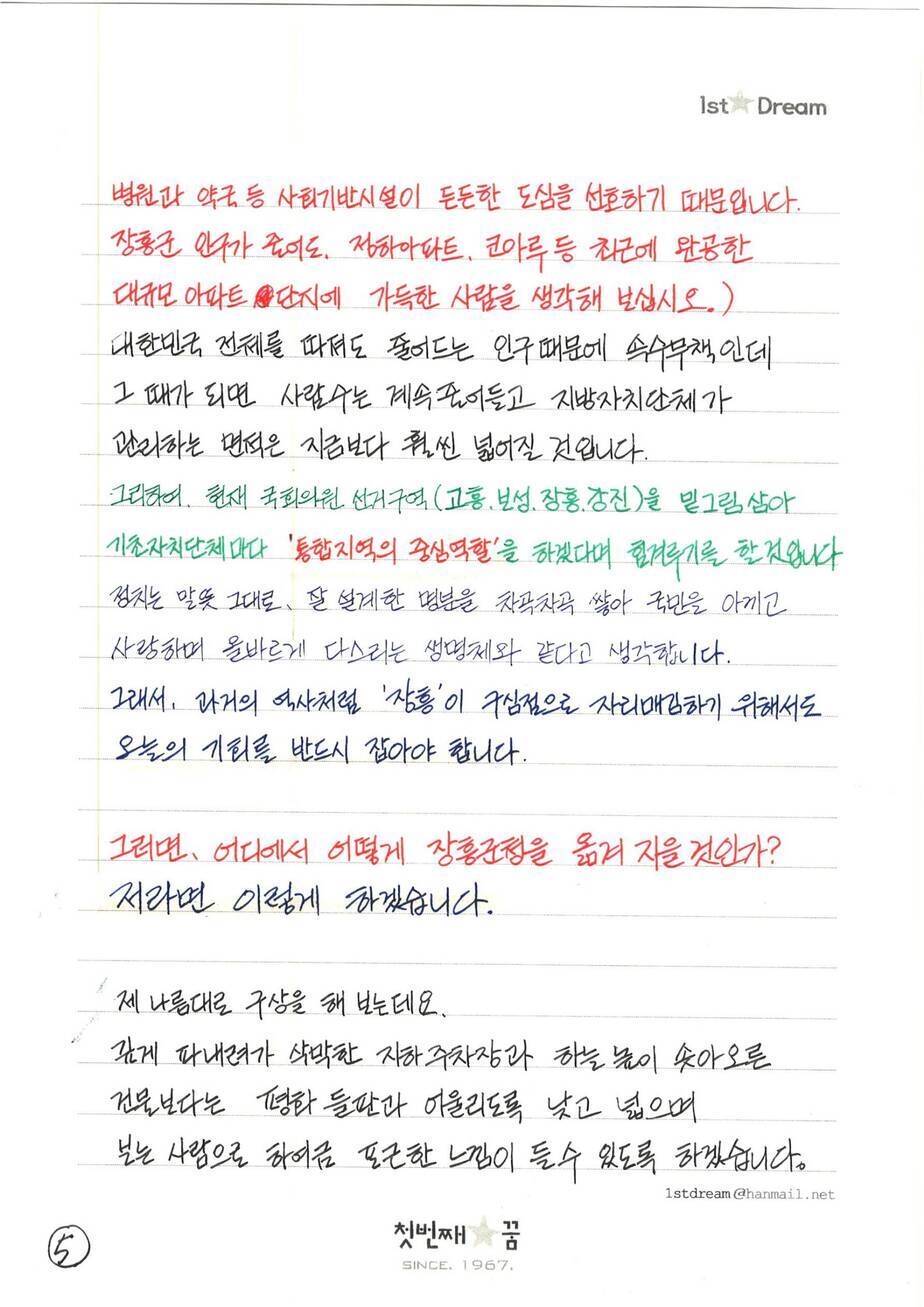 1st Dream
병원과 약국 등 사회기반시설이 든든한 도심을 선호하기 때문입니다.
장흥군 인구가 줄어도, 정하아파트, 코아루 등 최근에 완공한
대규모 아파트 단지에 가득한 사람을 생각해 보십시오.)
대한민국 전체를 따져도 줄어드는 인구 때문에 속수무책인데
그 때가 되면 사람 수는 계속 줄어들고 지방자치단체가
관리하는 면적은 지금보다 훨씬 넓어질 것입니다.
그리하여, 현재 국회의원 선거구역(고흥.보성.장흥.강진)을 밑그림 삼아
기초자치단체마다 '통합지역의 중심역할'을 하겠다며 힘겨루기를 할 것입니다
정치는 말뜻 그대로, 잘 설계한 명분을 차곡차곡 쌓아 국민을 아끼고
사랑하며 올바르게 다스리는 생명체와 같다고 생각합니다.
그래서, 과거의 역사처럼 '장흥'이 구심점으로 자리매김하기 위해서도
오늘의 기회를 반드시 잡아야 합니다.
그러면, 어디에서 어떻게 장흥군청을 옮겨 지을 것인가?
저라면 이렇게 하겠습니다.
제 나름대로 구상을 해 보는데요,
깊게 파내려가 삭막한 지하주차장과 하늘 높이 솟아오른
건물보다는 평화 들판과 어울리도록 낮고 넓으며
보는 사람으로 하여금 포근한 느낌이 들 수 있도록 하겠습니다.
1stdream@hanmail.net
첫번째 꿈
SINCE. 1967.
5